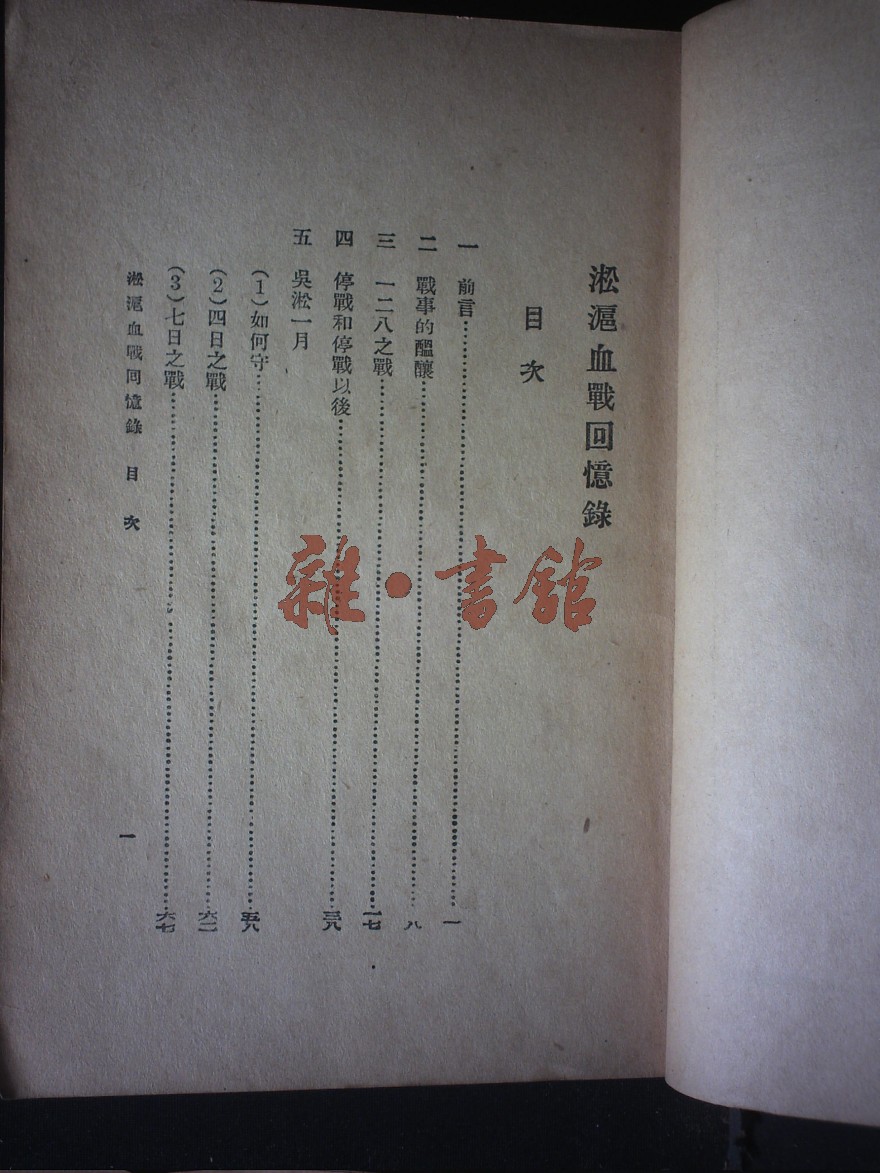 淞滬血戰回憶錄
目次
一 前言…………一
二 戰事的醞釀…………八
三 一二八之戰…………一七
四 停戰和停戰以後…………三八
五 吳淞一月
(1)如何守…………五八
(2)四日之戰…………六二
(3)七日之戰…………六七
淞滬血戰回憶錄 目次
一
雜·書館